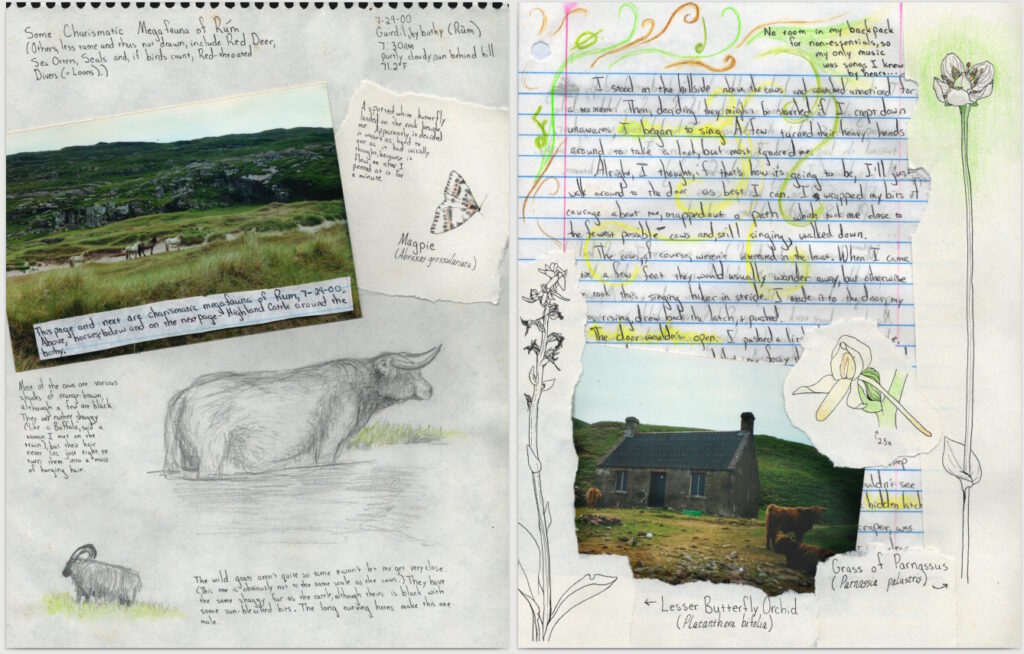 Some Charismatic Megafauna of Rúm
(Others, less tame and thus not drawn, include Red Deer,
Sea Otters, Seals and, if birds count, Red-throated
Divers (= Loons).)
7-29-00
Guirdil, by bothy (Rùm)
7:30am
partly cloudy, sun behind hill
71.2°F
A spotted white butterfly
landed on the rock beside
me. Apparently, it decided
it wasn't as hard to
see as it had initially
thought because it
flew on after I
peered at it for
a minute.
Magpie
(Abraxas grossulariata)
This page and next are charismatic megafauna of Rum, 7-29-00.
Above, horses; below and on the next page, Highland Cattle around the
bothy.
Most of the cows are various
shades of orange-brown,
although a few are black.
They are rather shaggy
(like a Buffalo, said a
woman I met on the
train), but their hair
never lies just right to
turn them into a mass
of hanging hair.
The wild goats aren't quite so tame & won't let me get very close.
(This one is obviously not to the same scale as the cows.) They have
the same shaggy fur as the cattle, although theirs is black with
some sun-bleached bits. The long curving horns make this one
male.
No room in my backpack
for non-essentials, so
my only music
was songs I knew
by heart...
I stood on the hillside above the cows and watched unnoticed for
a moment. Then, deciding they might be startled if I crept down
unawares, I began to sing. A few turned their heavy heads
around to take a look, but most ignored me.
Alright, I thought, if that's how it's going to be, I'll just
walk around to the door as best I can. I wrapped my bits of
courage about me, mapped out a path which took me close to
the fewest possible cows and, still singing, walked down.
The cows, of course, weren't interested in the least. When I came
within a few feet they would usually wander away, but otherwise
took this singing hiker in stride. I made it to the door, my
rising, drew back the latch, & pushed.
The door wouldn't open. I pushed a
2.5x
couldn't see
hidden latch
scraper, was
Grass of Parnassus
(Parnassia palustris)
← Lesser Butterfly Orchid
(Platanthera bifolia)